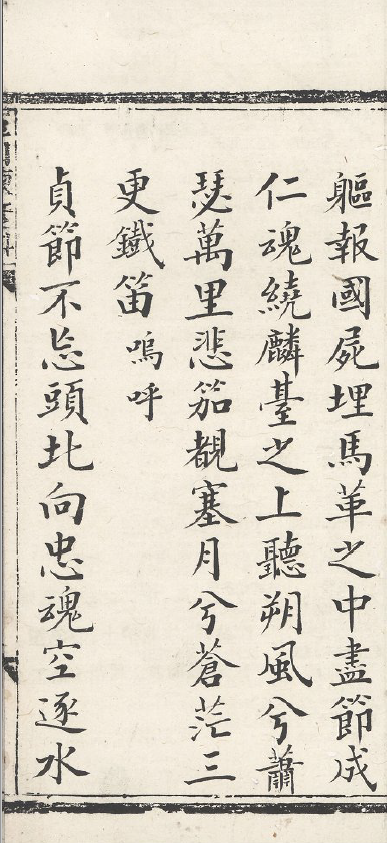 軀報國屍埋馬革之中盡節成
仁魂繞麟臺之上聽朔風兮蕭
瑟萬里悲笳覩塞月兮蒼茫三
更鐵笛嗚呼
貞節不忘頭北向忠魂空逐水